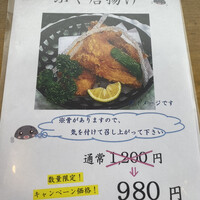 唐揚げ
イメージです
※骨がありますので、
気を付けて召し上がって下さい
通常 1,200円
⇩
数量限定！
キャンペーン価格！
980円